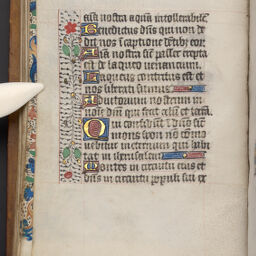 aīa nostra aquā intollerabilē
Benedictus dn̄s qui non de
dit nos ī captione dētibȝ eor̄
Aīa nostra sic̄ passer erepta
est de laqueo venantium
Laqueus contritus est et
nos liberati sumus
Adiutorium nostrum in
noīe dn̄i qui fecit celū et terrā
Qui confidunt ī dn̄o sic̄
mons syon nō cōmo
uebitur ineternum qui habi
tat in iherusalem
Montes in circuitu eius et
dn̄s in circuitu populi sui ex